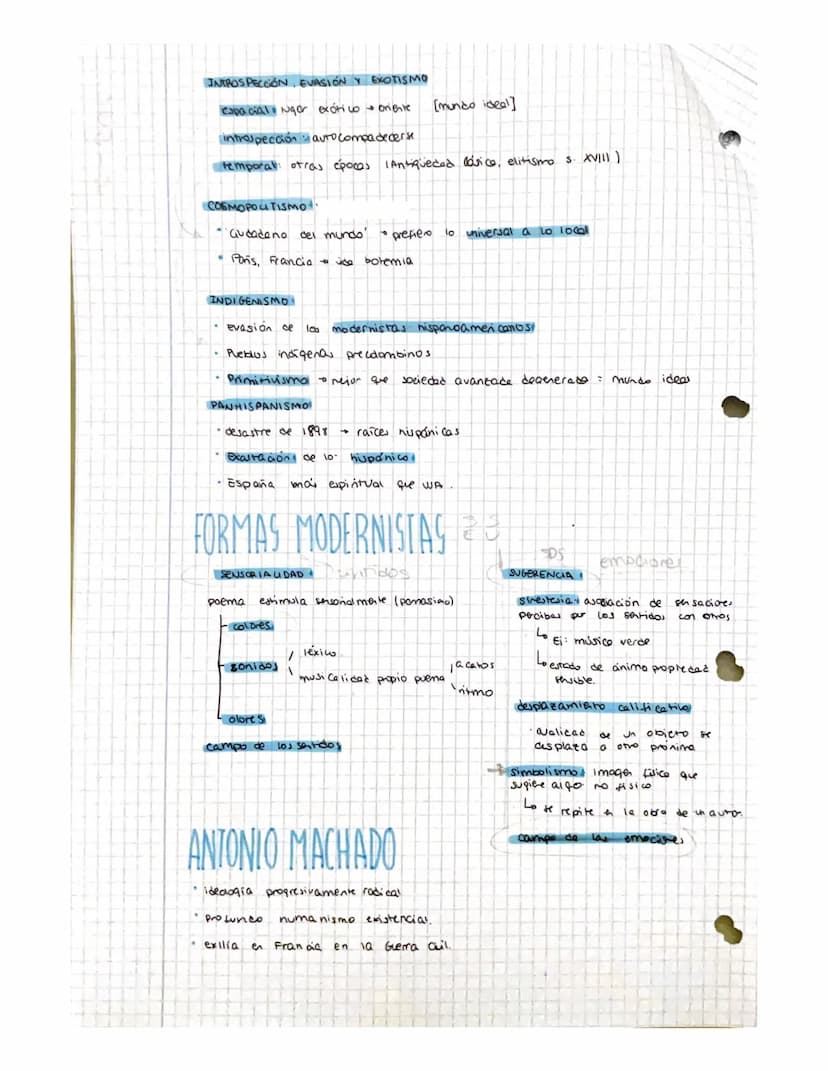 INTROSPECCIÓN, EVASIÓN Y EXOTISMO
espacial: lugar exótico → oriente [mundo ideal]
introspección: autocompadecerse
temporal: otras épocas (Antigüedad clásica, elitismo s. XVIII)
COSMOPOLITISMO:
• 'Ciudadano del mundo' → prefiero lo universal a lo local
• París, Francia → vida bohemia
INDIGENISMO:
• evasión de los modernistas hispanoamericanos
• Pueblos indígenas precolombinos
• Primitivismo → mejor que sociedad avanzada degenerada = mundo ideal
PANHISPANISMO
• desastre de 1898 → raíces hispánicas
• Exaltación de lo hispánico
• España más espiritual que
FORMAS MODERNISTAS
SENSORIALIDAD sentidos
poema estimula sensorialmente (parnasiano)
colores
sonidos
léxico
musicalidad propio poema
acentos
ritmo
olores
campo de los sentidos
emociones
SUGERENCIA:
sinestesia: asociación de sensaciones
percibas por los sentidos con otros
↳ Ej: músico verde
↳ estado de ánimo propiedad
sensible.
desplazamiento calificativo
• cualidad de un objeto se
desplaza a otro próximo
→ simbolismo: imagen físico que
sugiere algo no físico
↳ se repite en la obra de un autor
campo de las emociones
ANTONIO MACHADO
• ideología progresivamente radical
• Profundo humanismo existencial.
• exilia en Francia en la Guerra Civil.